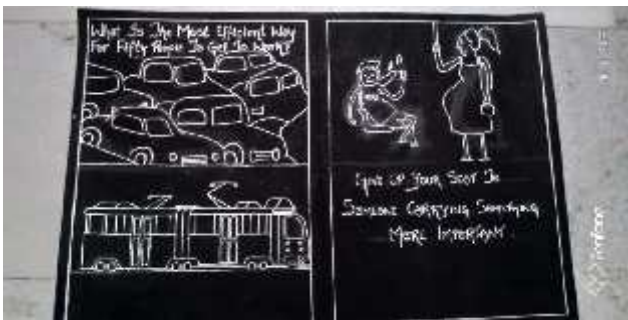 What Is The Most Efficient Way
For Fifty People To Get To Work?
Give up Your Seat To
Someone Carrying Something
More Important